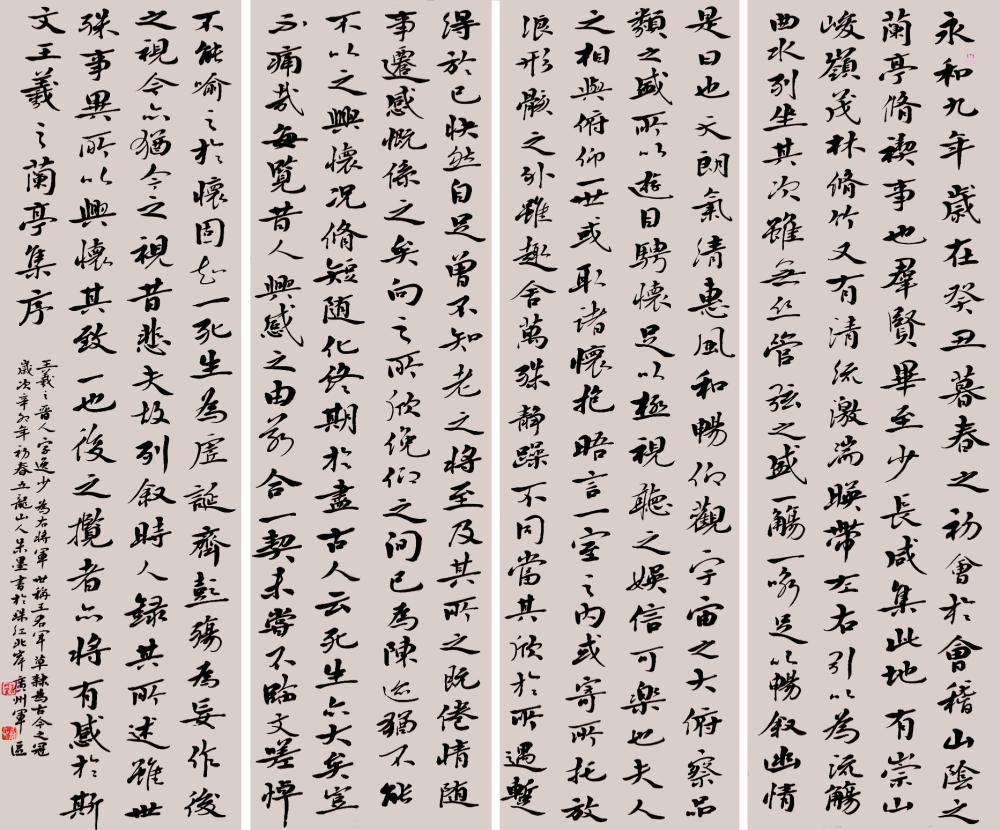 永和九年歲在癸丑暮春之初會於會稽山陰之
蘭亭脩禊事也羣賢畢至少長咸集此地有崇山
峻嶺茂林脩竹又有清流激湍暎帶左右引以為流觴
曲水列坐其次雖無丝管弦之盛一觴一詠足以暢叙幽情
是日也天朗氣清惠風和暢仰觀宇宙之大俯察品
類之盛所以遊目騁懷足以極視聽之娛信可樂也夫人
之相與俯仰一世或取諸懷抱晤言一室之內或寄所托放
浪形骸之外雖趣舍萬殊静躁不同當其欣於所遇暫
得於己快然自足曾不知老之將至及其所之既倦情随
事遷感慨係之矣向之所欣俛仰之間已為陳迹猶不能
不以之興懷况脩短随化终期於盡古人云死生亦大矣豈
不痛哉每覽昔人興感之由若合一契未嘗不臨文嗟悼
不能喻之於懷固知一死生為虛誕齊彭殤為妄作後
之視今亦猶今之視昔悲夫故列叙時人錄其所述雖世
殊事異所以興懷其致一也後之攬者亦將有感於斯
文王羲之蘭亭集序
王羲之晋人字逸少為右將軍世稱王右軍草隸為古今之冠
歲次辛卯年初春五龍山人朱墨書於珠江北岸廣州軍區